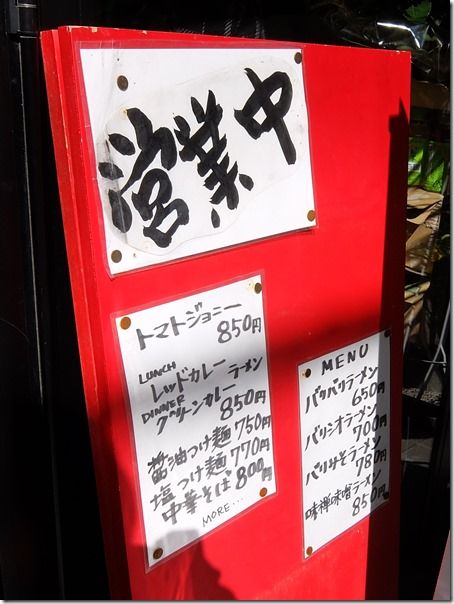 営業中
トマトジョニー
850円
LUNCH
レッドカレー
DINNER ラーメン
グリーンカレー
850円
醤油つけ麺 750円
塩つけ麺 770円
中華そば 800円
MORE...
MENU
バリバリラーメン
650円
バリシオラーメン
700円
バリみそラーメン
780円
味禅味噌ラーメン
850円